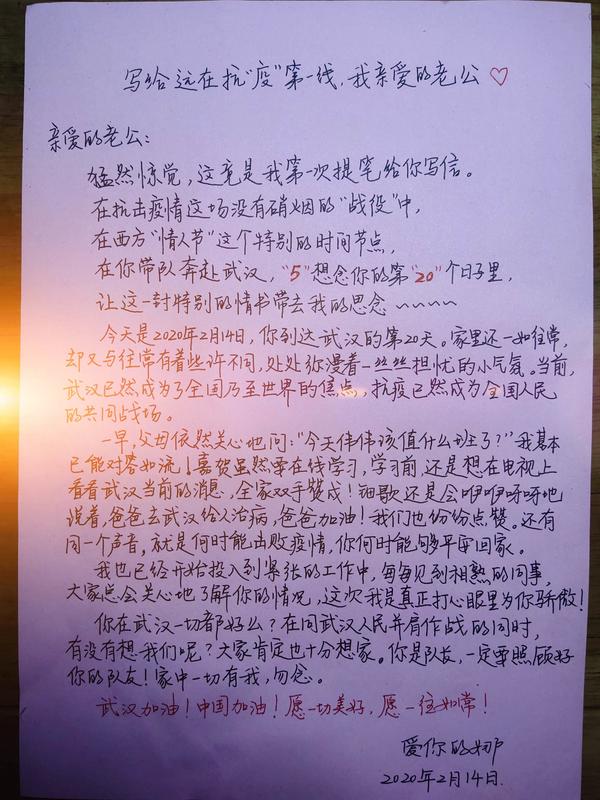 写给远在抗“疫”第一线,我亲爱的老公♡
亲爱的老公:
猛然惊觉,这竟是我第一次提笔给你写信。
在抗击疫情这场没有硝烟的“战役”中,
在西方“情人节”这个特别的时间节点,
在你带队奔赴武汉,“5”想念你的第“20”个日子里,
让这一封特别的情书带去我的思念~~~~
今天是2020年2月14日,你到达武汉的第20天。家里还一如往常,
却又与往常有着些许不同,处处弥漫着一丝丝担忧的小气氛。当前,
武汉已然成为了全国乃至世界的焦点,抗疫已然成为全国人民
的共同战场。
一早,父母依然关心地问:“今天伟伟该值什么班了?”我基本
已能对答如流!嘉贺虽然要在线学习,学习前,还是想在电视上
看看武汉当前的消息,全家双手赞成!细歌还是会咿咿呀呀地
说着,爸爸去武汉给人治病,爸爸加油!我们也纷纷点赞。还有
同一个声音,就是何时能击败疫情,你何时能够平安回家。
我也已经开始投入到紧张的工作中,每每见到相熟的同事,
大家总会关心地了解你的情况,这次我是真正打心眼里为你骄傲!
你在武汉一切都好么?在同武汉人民并肩作战的同时,
有没有想我们呢?大家肯定也十分想家。你是队长,一定要照顾好
你的队友!家中一切有我,勿念。
武汉加油!中国加油!愿一切美好,愿一往如常!
爱你的娜
2020年2月14日.